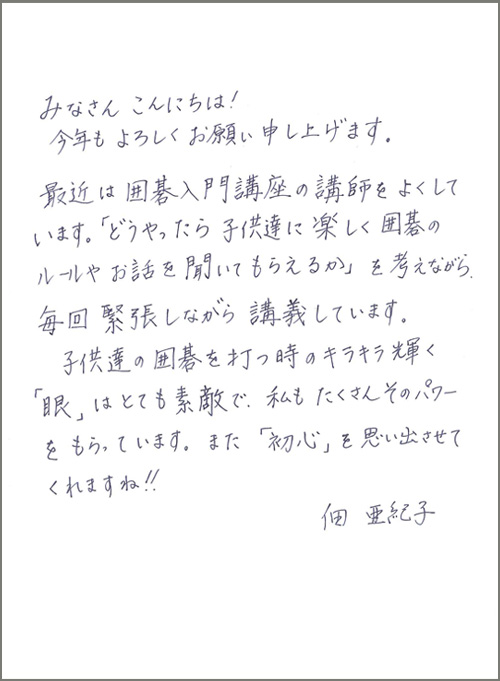 みなさん こんにちは!
今年も よろしく お願い 申し上げます。
最近は 囲碁入門講座の講師を よくして
います。「どうやったら 子供達に 楽しく 囲碁の
ルールや お話を 聞いて もらえるか」 を 考えながら、
毎回 緊張しながら 講義しています。
子供達の 囲碁を 打つ時の キラキラ 輝く
「眼」は とても 素敵で、私も たくさん その パワー
を もらっています。また 「初心」を 思い出させて
くれますね!!
佃 亜紀子